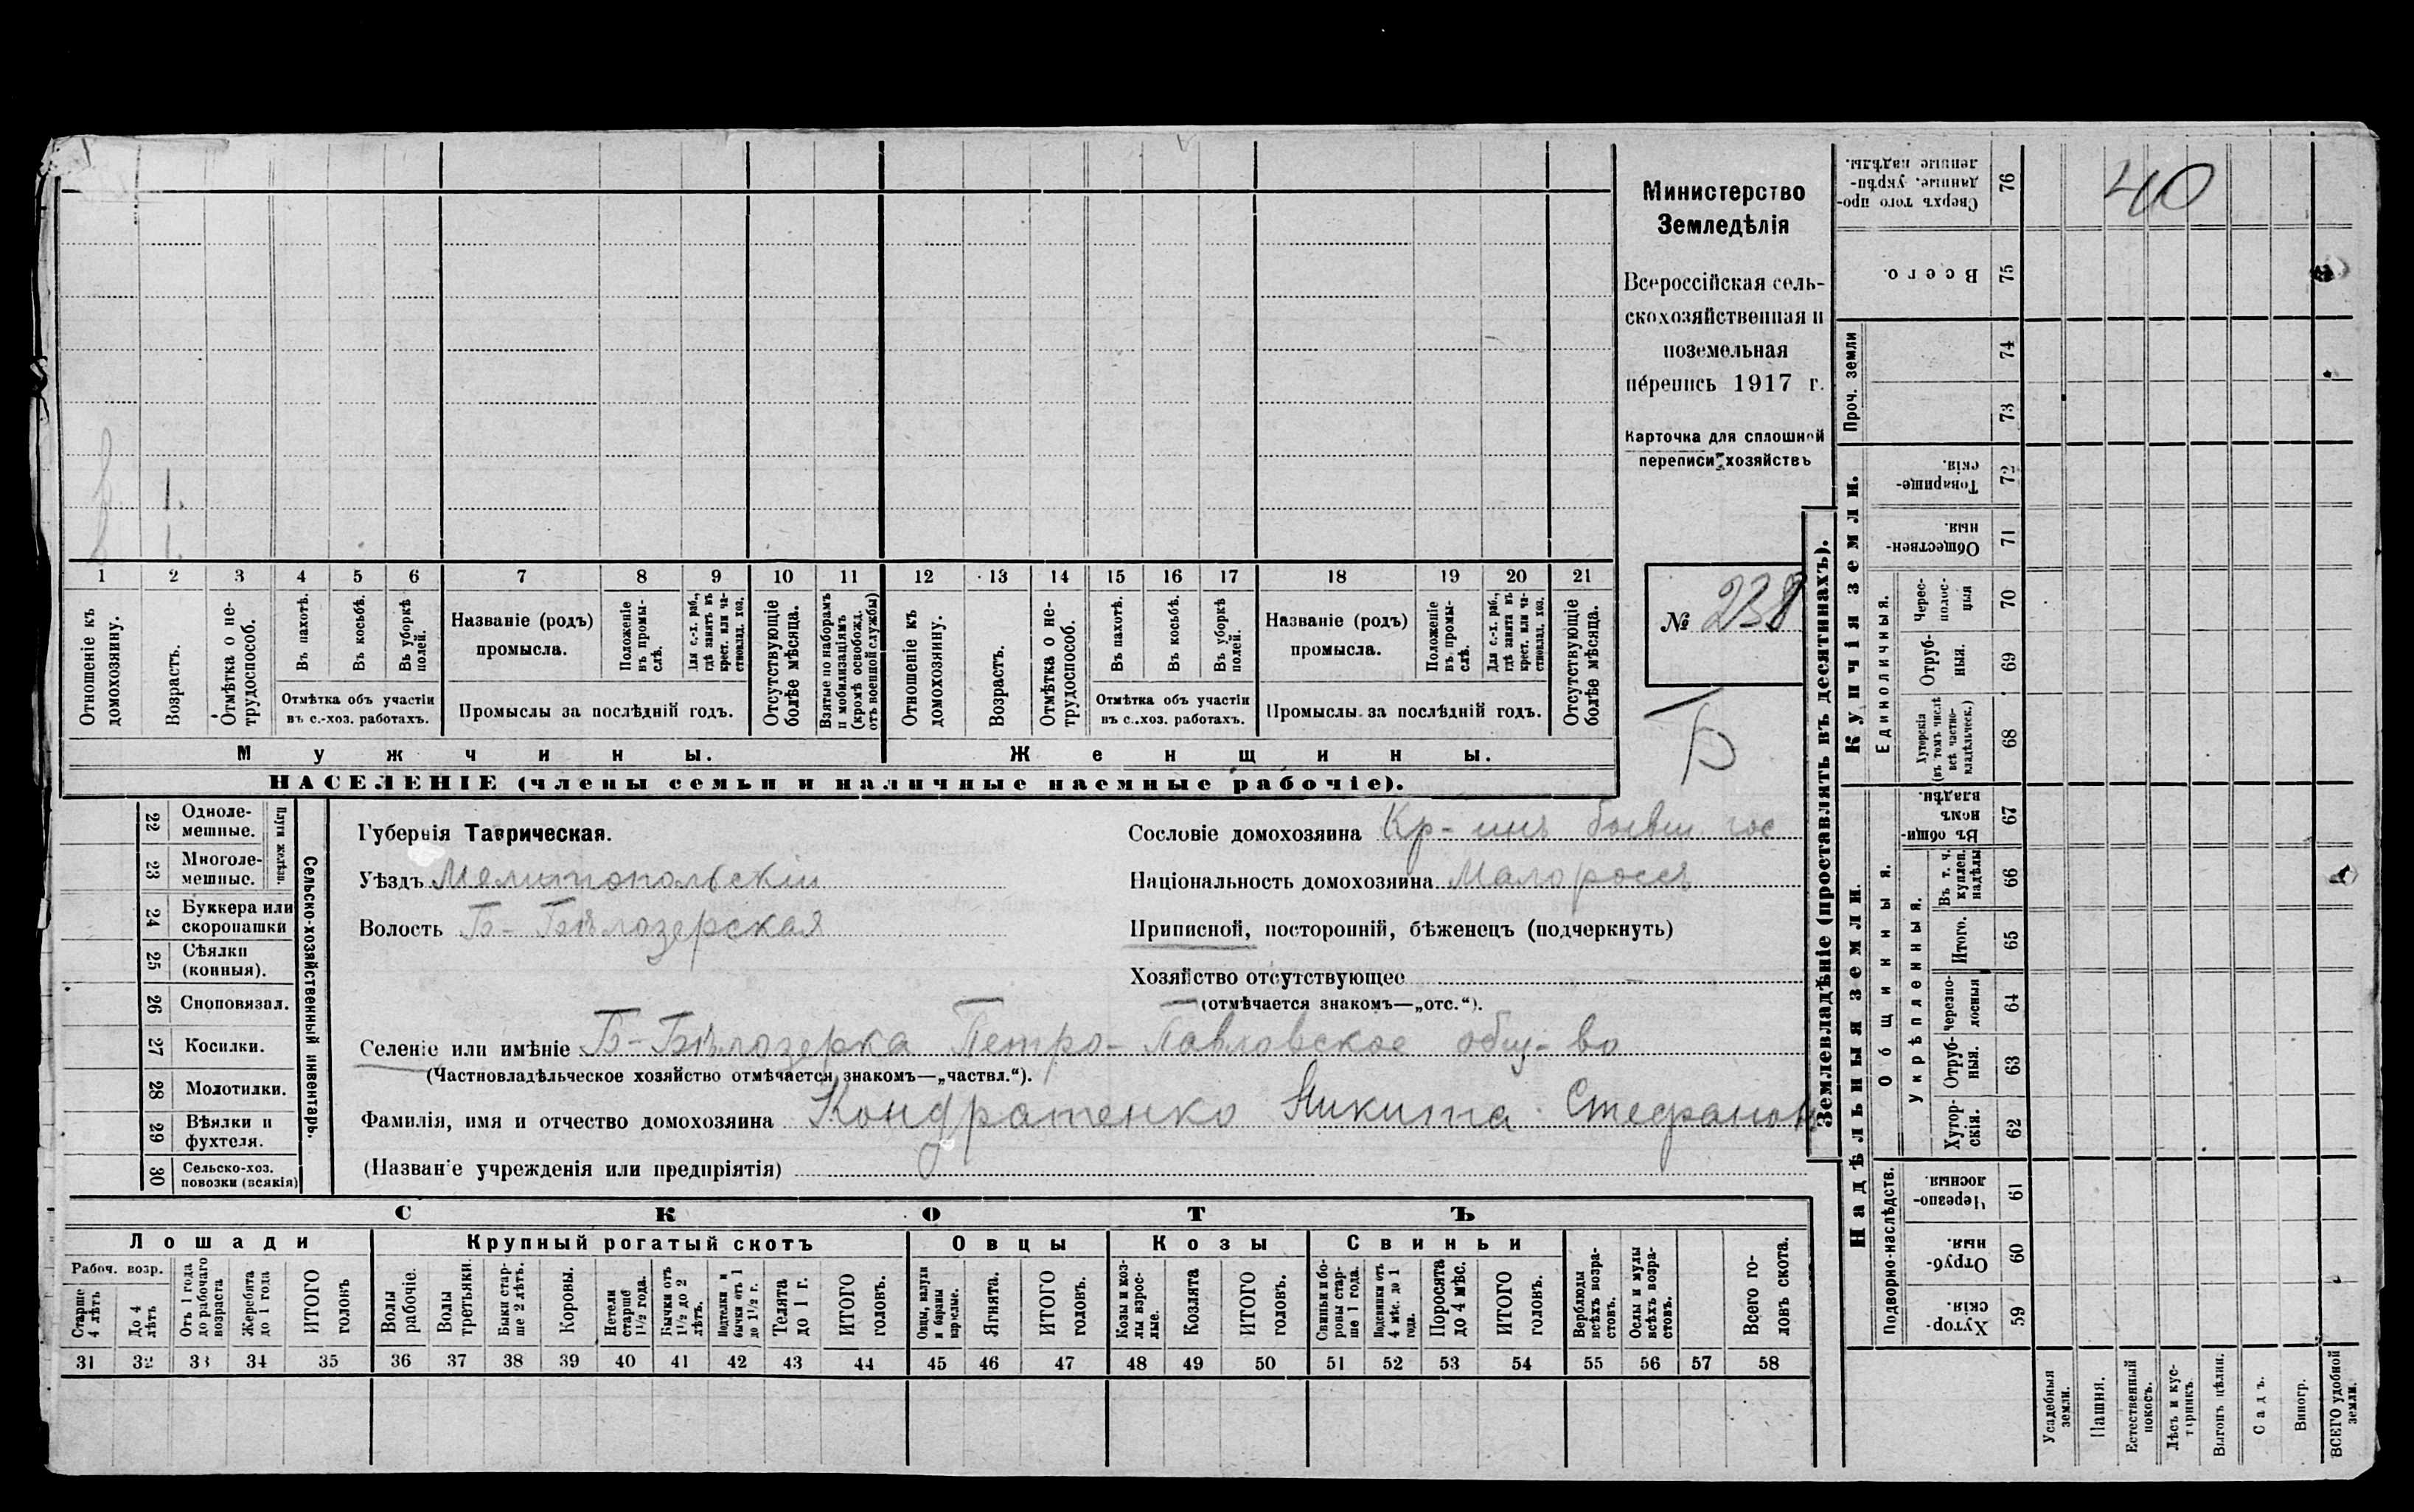 Министерство
Земледѣлія
Всероссійская сель-
скохозяйственная и
поземельная
перепись 1917 г.
Карточка для сплошной
переписи хозяйствъ
№ 238
Б
40
1 2 3 4 5 6 7 8 9 10 11 12 13 14 15 16 17 18 19 20 21
Отношеніе къ домохозяину.
Возрастъ.
Отмѣтка о не-трудоспособ.
Въ пахотѣ.
Въ косьбѣ.
Въ уборкѣ полей.
Отмѣтка объ участіи
въ с.-хоз. работахъ.
Названіе (родъ)
промысла.
Положеніе въ промы-слѣ.
Для с.-х. раб., гдѣ занятъ въ крест. или ча-стновлад. хоз.
Промыслы за послѣдній годъ.
Отсутствующіе болѣе мѣсяца.
Взятые по наборамъ и мобилизаціямъ (кромѣ освобожд. отъ военной службы)
Отношеніе къ домохозяину.
Возрастъ.
Отмѣтка о не-трудоспособ.
Въ пахотѣ.
Въ косьбѣ.
Въ уборкѣ полей.
Отмѣтка объ участіи
въ с.-хоз. работахъ.
Названіе (родъ)
промысла.
Положеніе въ промы-слѣ.
Для с.-х. раб., гдѣ занята въ крест. или ча-стновлад. хоз.
Промыслы за послѣдній годъ.
Отсутствующіе болѣе мѣсяца.
Мужчины.
Женщины.
НАСЕЛЕНІЕ (члены семьи и наличные наемные рабочіе).
Сельско-хозяйственный инвентарь.
Плуги желѣзн.
22 Одноле-мешные.
23 Многоле-мешные.
24 Буккера или скоропашки
25 Сѣялки (конныя).
26 Сноповязал.
27 Косилки.
28 Молотилки.
29 Вѣялки и фухтеля.
30 Сельско-хоз. повозки (всякія)
Губернія Таврическая.
Уѣздъ Мелитопольскій
Волость Б-Бѣлозерская
Сословіе домохозяина Кр-инъ бывш. гос
Національность домохозяина Малороссъ
Приписной, посторонній, бѣженецъ (подчеркнуть)
Хозяйство отсутствующее —
(отмѣчается знакомъ—„отс.“).
Селеніе или имѣніе Б-Бѣлозерка Петро-Павловское общ-во
(Частновладѣльческое хозяйство отмѣчается знакомъ—„частвл.“).
Фамилія, имя и отчество домохозяина Кондратенко Никита Стефанов
(Названіе учрежденія или предпріятія)
СКОТЪ
Лошади
Крупный рогатый скотъ
Овцы
Козы
Свиньи
Рабоч. возр.
Старше 4 лѣтъ
До 4 лѣтъ
Отъ 1 года до рабочаго возраста
Жеребята до 1 года
ИТОГО головъ
Волы рабочіе.
Волы третьяки.
Быки стар-ше 2 лѣтъ.
Коровы.
Нетели старше 1½ года.
Бычки отъ 1½ до 2 лѣтъ.
Подтелки и бычки отъ 1 до 1½ г.
Телята до 1 г.
ИТОГО головъ.
Овцы, валухи и бараны взрослые.
Ягнята.
ИТОГО головъ.
Козы и коз-лы взрос-лые.
Козлята
ИТОГО головъ.
Свиньи и бо-ровы стар-ше 1 года.
Подсвинки отъ 4 мѣс. до 1 года.
Поросята до 4 мѣс.
ИТОГО головъ.
Верблюды всѣхъ возра-стовъ.
Ослы и мулы всѣхъ возра-стовъ.
Всего го-ловъ скота.
31 32 33 34 35 36 37 38 39 40 41 42 43 44 45 46 47 48 49 50 51 52 53 54 55 56 57 58
Землевладѣніе (проставлять въ десятинахъ).
Купчія земли.
Надѣльныя земли.
Проч. земли
Единоличныя.
Общинныя.
Укрѣпленныя.
Подворно-наслѣдств.
76 Сверхъ того про-данные, укрѣп-ленные надѣлы.
75 Всего.
74
73
72 Товарище-скія.
71 Обществен-ныя.
70 Черес-полос-цыя
69 Отруб-ныя.
68 Хуторскія (въ томъ числѣ всѣ частно-владѣльческ.)
67 Въ общин-номъ владѣн.
66 Въ т. ч. куплен. надѣлы
65 Итого.
64 Черезпо-лосныя
63 Отруб-ныя.
62 Хутор-скія.
61 Черезпо-лосныя.
60 Отруб-ныя.
59 Хутор-скія.
Усадебныя земли.
Пашня.
Естественный покосъ.
Лѣсъ и кус-тарникъ.
Выгонъ цѣлин.
Садъ.
Виногр.
ВСЕГО удобной земли.